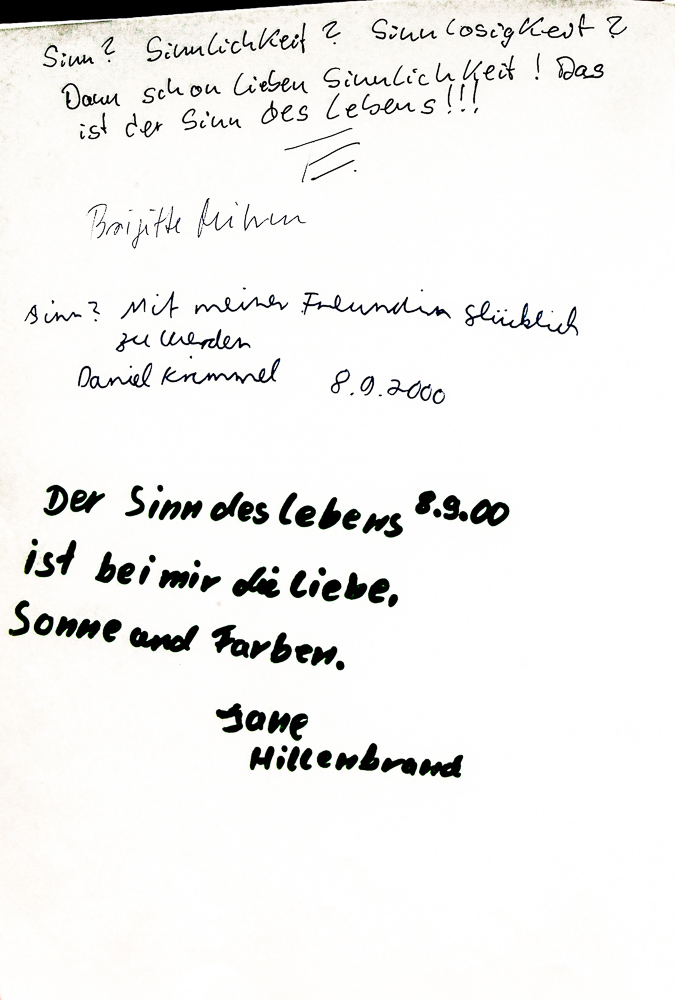 Sinn? Sinnlichkeit? Sinnlosigkeit?
Dann schon lieben Sinnlichkeit! Das
ist der Sinn des Lebens!!!
Brigitte
Sinn? Mit meiner Freundin glücklich
zu werden
Daniel Krimmel 8.9.2000
Der Sinn des Lebens 8.9.00
ist bei mir die Liebe,
Sonne und Farben.
Jane
Hillenbrand